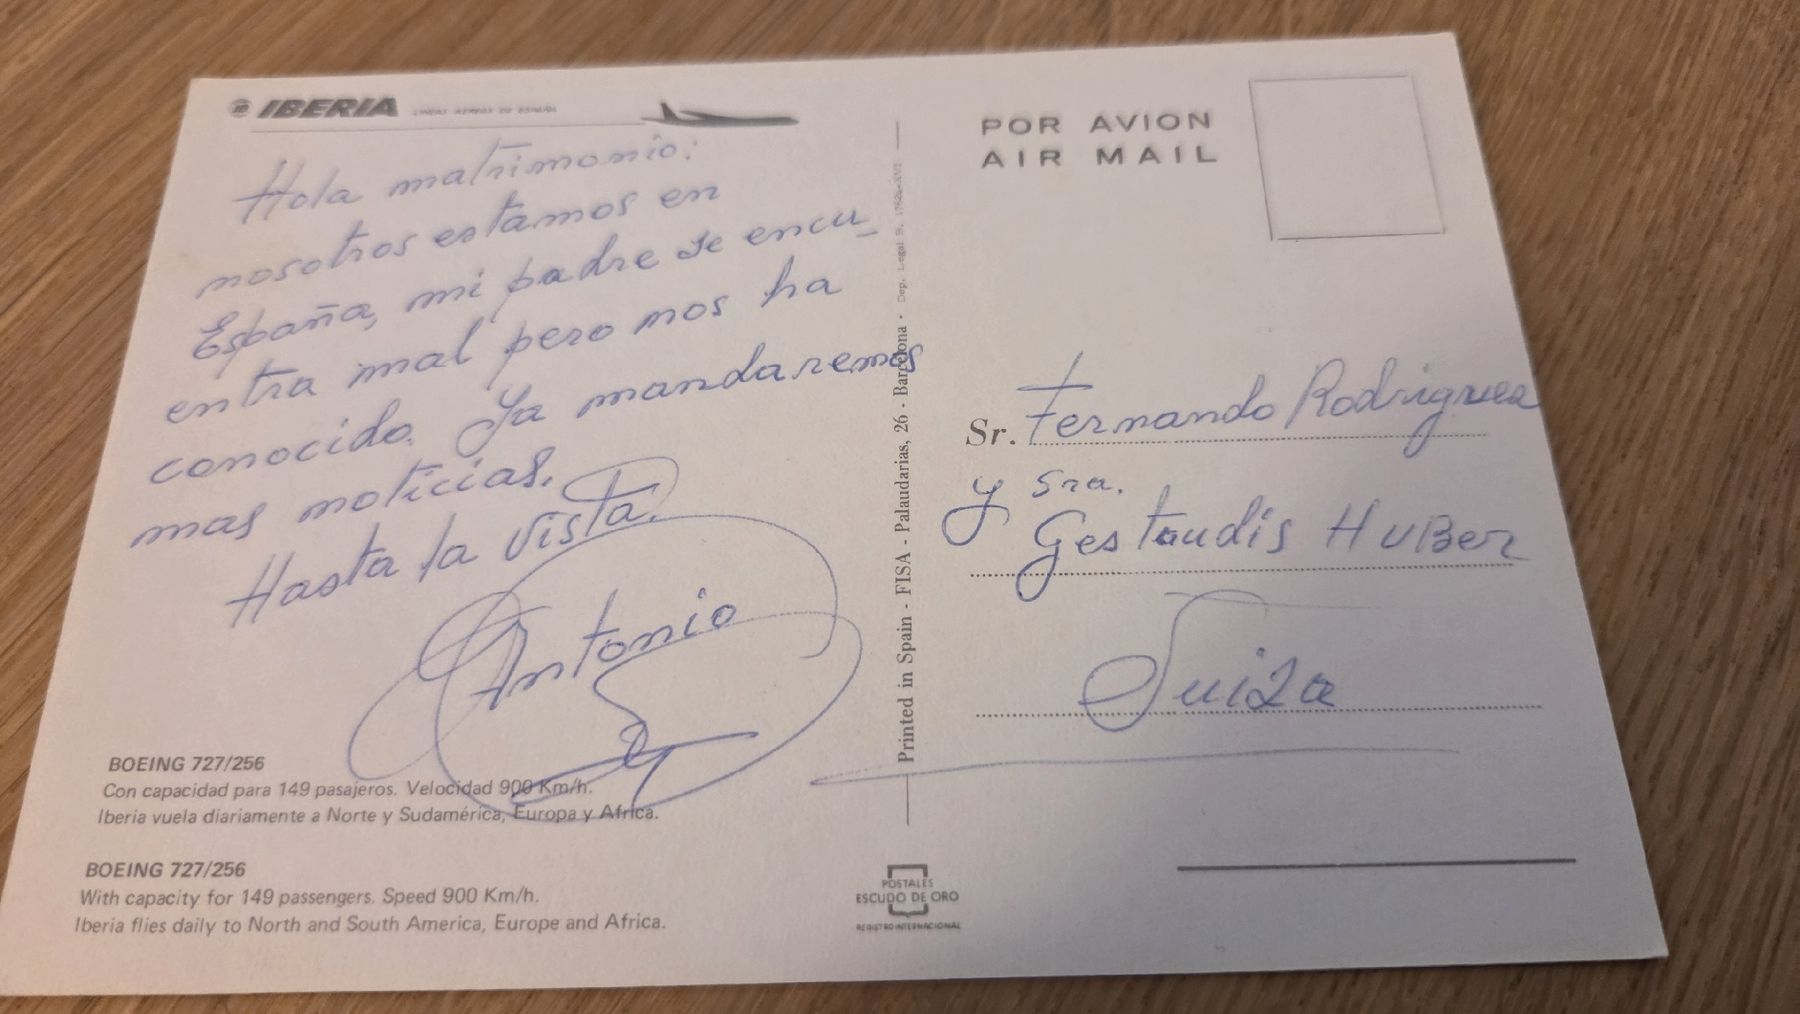 IBERIA LINEAS AEREAS DE ESPAÑA
Hola matrimonio:
nosotros estamos en
España, mi padre se encu_
entra mal pero nos ha
conocido. Ya mandaremos
mas noticias.
Hasta la vista.
Antonio
BOEING 727/256
Con capacidad para 149 pasajeros. Velocidad 900 Km/h.
Iberia vuela diariamente a Norte y Sudamérica, Europa y Africa.
BOEING 727/256
With capacity for 149 passengers. Speed 900 Km/h.
Iberia flies daily to North and South America, Europe and Africa.
Printed in Spain - FISA - Palaudarias, 26 - Barcelona - Dep. Legal B.
POSTALES
ESCUDO DE ORO
REGISTRO INTERNACIONAL
POR AVION
AIR MAIL
Sr. Fernando Rodriguez
y Sra.
Gestaudis HUBer
Suiza